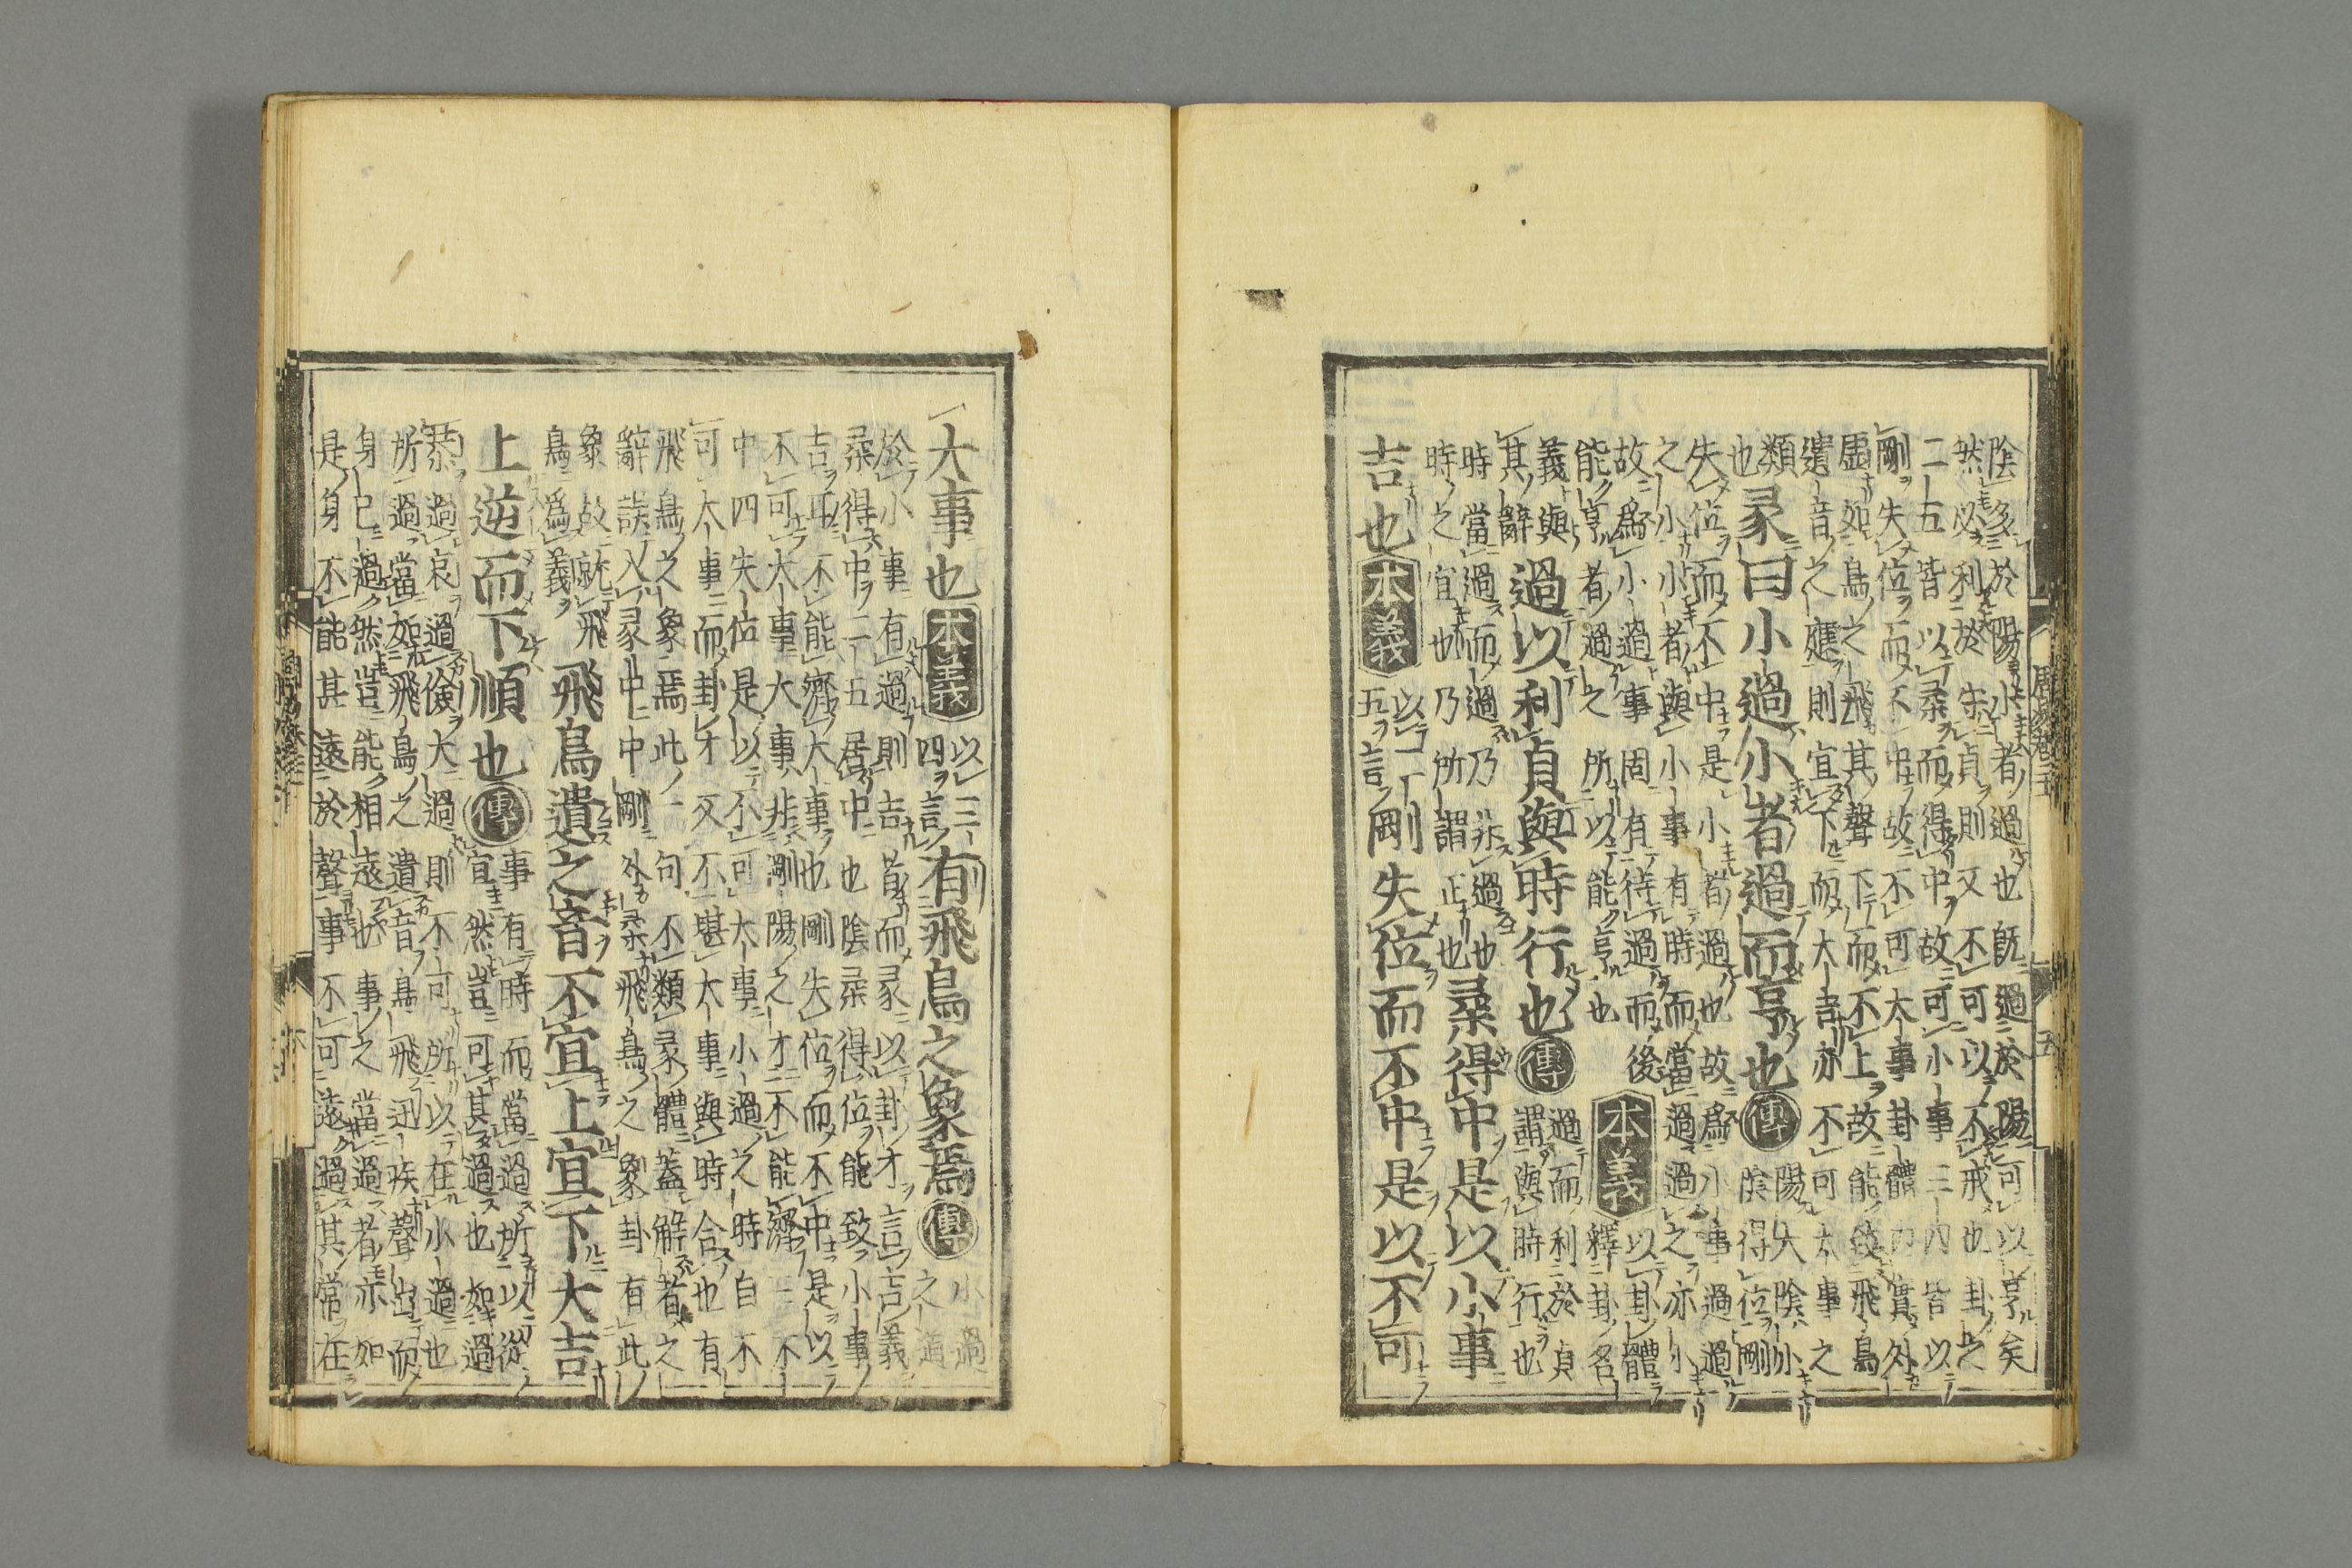 陰多於陽小者過也既過於陽可以亨矣
然必利於守貞則又不可以不戒也卦之
二五皆以柔而得中故可小事三四皆以
剛失位而不中故不可大事卦體内實外
虛如鳥之飛其聲下而不上故能致飛鳥
遺音之應則宜下而大吉亦不可大事之
類
也
彖曰小過小者過而亨也傳
陽大陰小
陰得位剛
失位而不中是小者過也故爲小事過過
之小小者與小事有時而當過過之亦小
故爲小過事固有待過而後
能亨者過之所以能亨也
本義
以卦體
釋卦名
義與
其辭
過以利貞與時行也傳
過而利於貞
謂與時行也
時當過而過乃非過也
時之宜也乃所謂正也
柔得中是以小事
吉也本義
以二
五言
剛失位而不中是以不可
大事也本義
以三
四言
有飛鳥之象焉傳
小過
之道
於小事有過則吉者而彖以卦才言吉義
柔得中二五居中也陰柔得位能致小事
吉耳不能濟大事也剛失位而不中是以
不可大事大事非剛陽之才不能濟三不
中四失位是以不可大事小過之時自不
可大事而卦才又不堪大事與時合也有
飛鳥之象焉此一句不類彖體蓋解者之
辭誤入彖中中剛外柔飛鳥之象卦有此
象故就飛
鳥爲義
飛鳥遺之音不宜上宜下大吉
上逆而下順也傳
事有時而當過所以從
宜然豈可甚過也如過
恭過哀過儉大過則不可所以在小過也
所過當如飛鳥之遺音鳥飛迅疾聲出而
身已過然豈能相遠也事之當過者亦如
是身不能甚遠於聲事不可遠過其常在